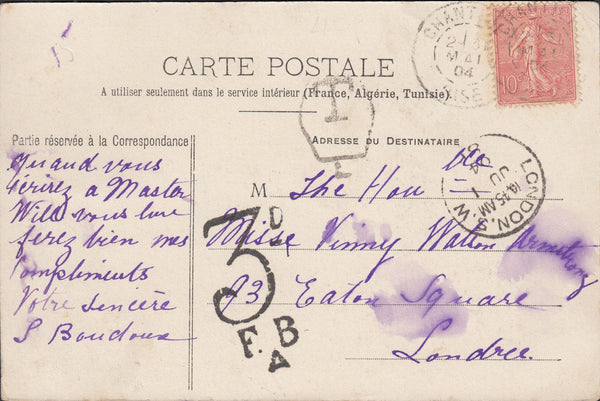 CARTE POSTALE
A utiliser seulement dans le service intérieur (France, Algérie, Tunisie).
Partie réservée à la Correspondance
ADRESSE DU DESTINATAIRE
Quand vous
écrirez a Master
Will vous lui
ferez bien mes
Compliments
Votre sincère
S Boudoux
M The Hon ble
Misse Vinny Watson Armstrong
93 Eaton Square
Londree.
T
3D
F.B
A
LONDON, S.W.
11.45AM
JU 1
04
CHANTI
MAI
04
OISE
10c